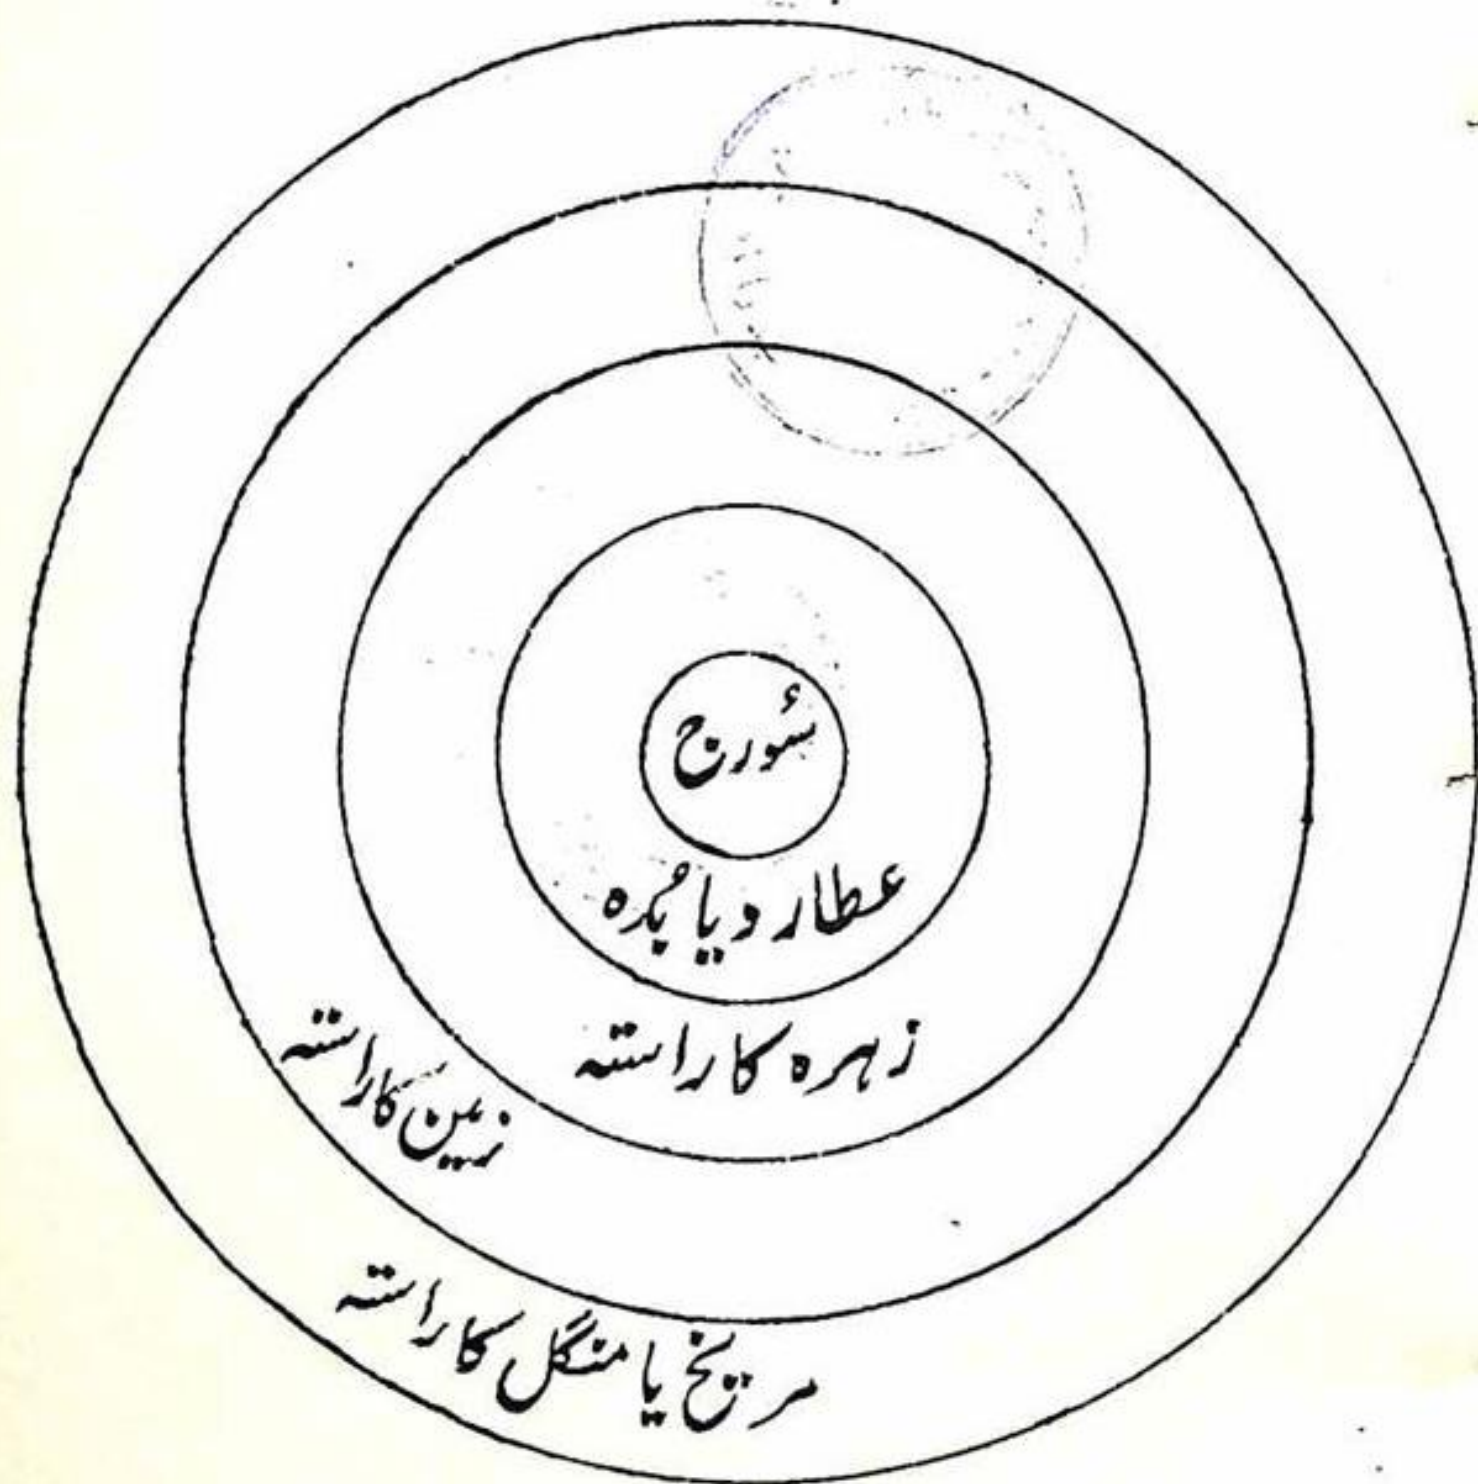 سُورج
عطارد یا بُدہ
زہرہ کا راستہ
زمین کا راستہ
مریخ یا منگل کا راستہ